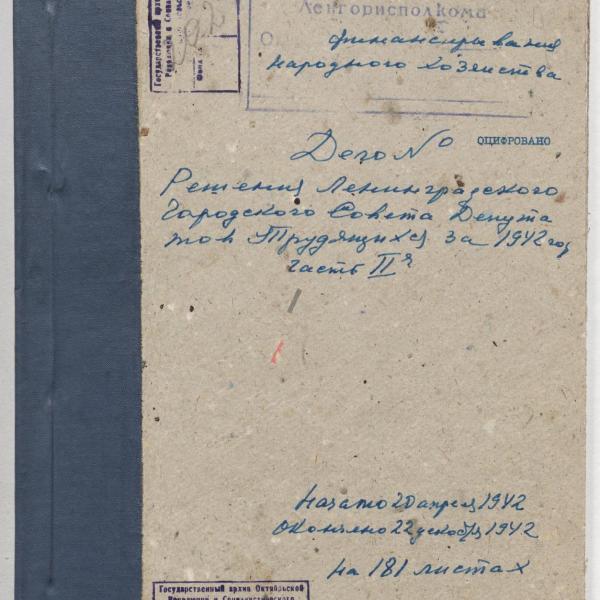 Государственный арх
Ленгорисполкома
О
финансирования
народного хозяйства
ОЦИФРОВАНО
Дело №
Решения Ленинградского
Городского Совета Депута
тов Трудящихся за 1942 год
часть II я
Начато 20 апреля 1942
Окончено 22 декабря 1942
на 181 листах
Государственный архив Октябрьской
Революции и Социалистического